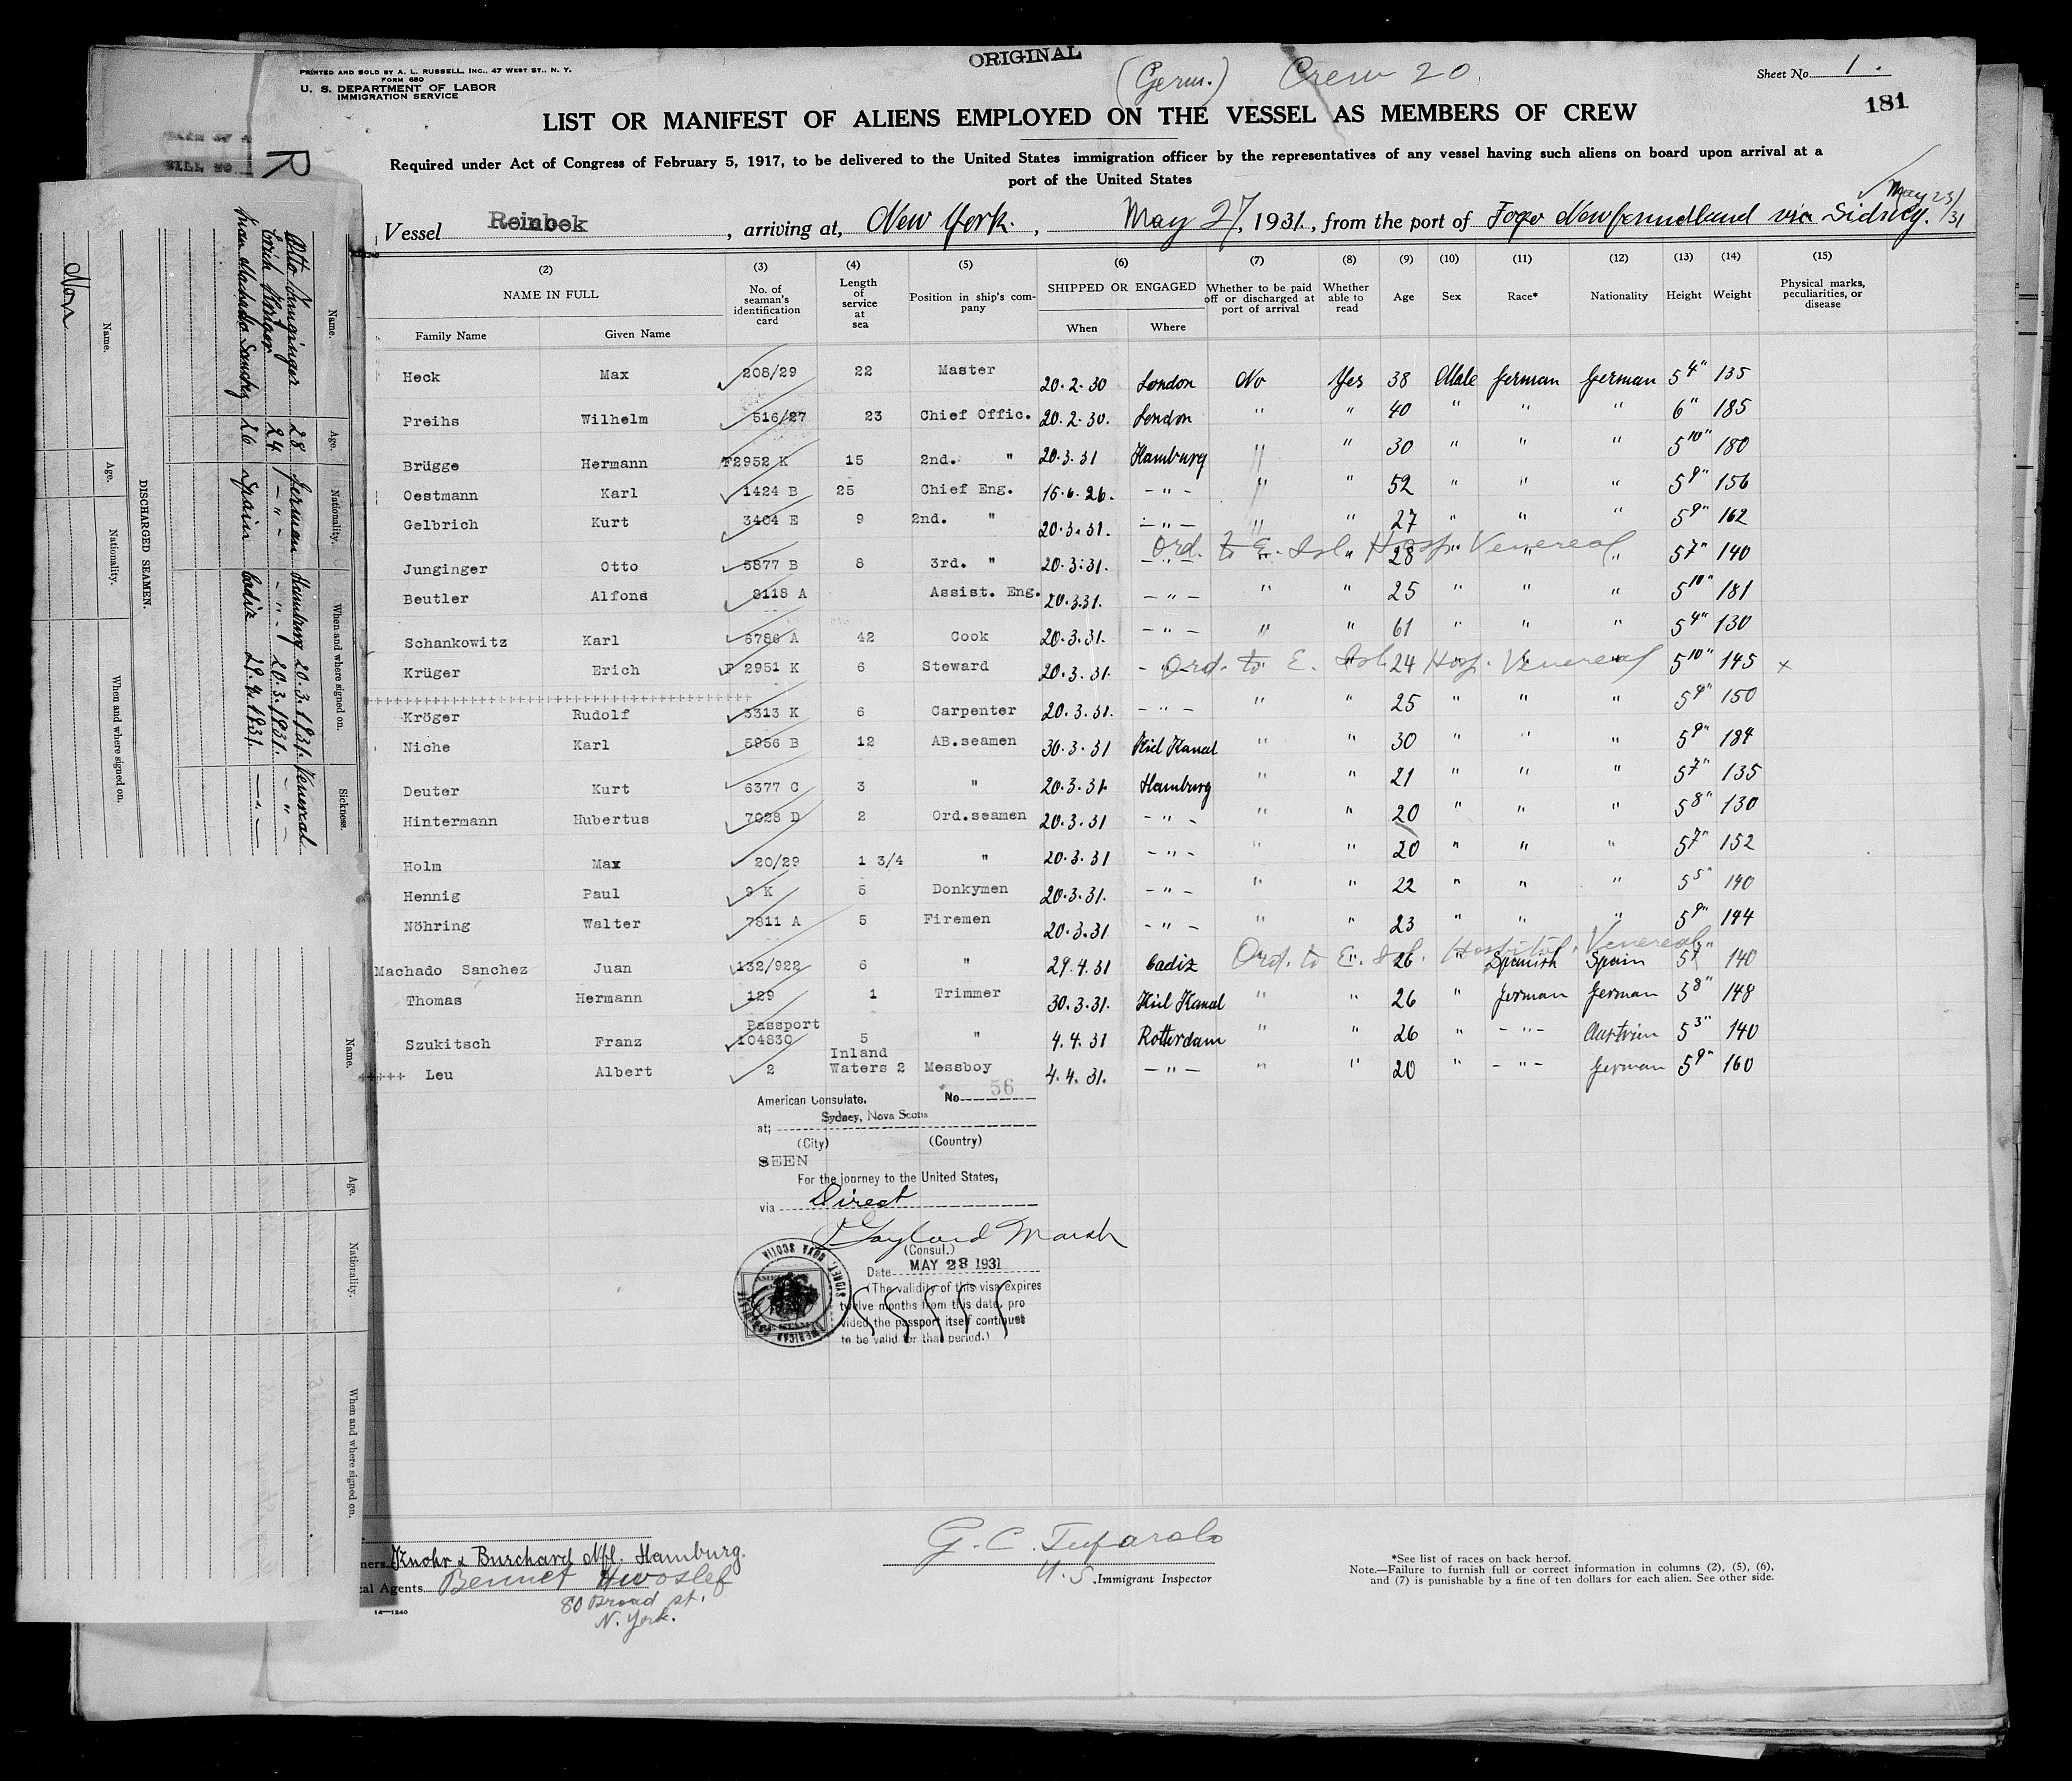 ORIGINAL
(Germ.) Crew 20
PRINTED AND SOLD BY A. L. RUSSELL, INC., 47 WEST ST., N. Y.
FORM 680
U. S. DEPARTMENT OF LABOR
IMMIGRATION SERVICE
Sheet No. 1.
181
LIST OR MANIFEST OF ALIENS EMPLOYED ON THE VESSEL AS MEMBERS OF CREW
Required under Act of Congress of February 5, 1917, to be delivered to the United States immigration officer by the representatives of any vessel having such aliens on board upon arrival at a
port of the United States
May 23/31
Vessel Reinbek, arriving at, New York., May 27, 1931, from the port of Fogo Newfoundland via Sidney.
(2) (3) (4) (5) (6) (7) (8) (9) (10) (11) (12) (13) (14) (15)
NAME IN FULL No. of seaman's identification card Length of service at sea Position in ship's company SHIPPED OR ENGAGED Whether to be paid off or discharged at port of arrival Whether able to read Age Sex Race* Nationality Height Weight Physical marks, peculiarities, or disease
Family Name Given Name When Where
Heck Max 208/29 22 Master 20.2.30 London No Yes 38 Male German German 5 4" 135
Preihs Wilhelm 516/27 23 Chief Offic. 20.2.30. London " " 40 " " " 6" 185
Brügge Hermann F2952 K 15 2nd. " 20.3.31 Hamburg " " 30 " " " 5 10" 180
Oestmann Karl 1424 B 25 Chief Eng. 15.6.26. - " - " " 52 " " " 5 9" 156
Gelbrich Kurt 3404 E 9 2nd. " 20.3.31. - " - " " 27 " " " 5 9" 162
Ord. to E. Isl. Hosp. Venereal
Junginger Otto 5877 B 8 3rd. " 20.3.31. - " - " " 28 " " " 5 7" 140
Beutler Alfons 9118 A Assist. Eng. 20.3.31. - " - " " 25 " " " 5 10" 181
Schankowitz Karl 6786 A 42 Cook 20.3.31. - " - " " 61 " " " 5 4" 130
Krüger Erich F 2951 K 6 Steward 20.3.31. - " Ord. to E. Isl. 24 Hosp. Venereal 5 10" 145 x
Kröger Rudolf 3313 K 6 Carpenter 20.3.31. - " - " " 25 " " " 5 9" 150
Niche Karl 5956 B 12 AB.seamen 30.3.31 Kiel Kanal " " 30 " " " 5 9" 184
Deuter Kurt 6377 C 3 " 20.3.31 Hamburg " " 21 " " " 5 7" 135
Hintermann Hubertus 7028 D 2 Ord.seamen 20.3.31 - " - " " 20 " " " 5 8" 130
Holm Max 20/29 1 3/4 " 20.3.31 - " - " " 20 " " " 5 7" 152
Hennig Paul 9 K 5 Donkymen 20.3.31. - " - " " 22 " " " 5 5" 140
Nöhring Walter 7811 A 5 Firemen 20.3.31 - " - " " 23 " " " 5 9" 144
Ord. to E. Isl. Hospital. Venereal
Machado Sanchez Juan 132/922 6 " 29.4.31 Cadiz " 26 " Spanish Spain 5 7" 140
Thomas Hermann 129 1 Trimmer 30.3.31. Kiel Kanal " " 26 " German German 5 8" 148
Szukitsch Franz Passport 104830 5 " 4.4.31 Rotterdam " " 26 " - " - Austrian 5 3" 140
+++++ Leu Albert 2 Inland Waters 2 Messboy 4.4.31. - " - " " 20 " - " - German 5 9" 160
American Consulate. No 56
at; Sydney, Nova Scotia
(City) (Country)
SEEN
For the journey to the United States,
via Direct
Gaylord Marsh
(Consul.)
Date MAY 28 1931
(The validity of this visa expires
twelve months from this date, pro
vided the passport itself continues
to be valid for that period.)
AMERICAN CONSULATE SIDNEY, NOVA SCOTIA
Knohr & Burchard Nfl. Hamburg.
Agents Bennet Hvoslef
80 Broad st.
N. York.
14—1240
G. C. Tufarolo
U.S. Immigrant Inspector
*See list of races on back hereof.
Note.—Failure to furnish full or correct information in columns (2), (5), (6),
and (7) is punishable by a fine of ten dollars for each alien. See other side.
DISCHARGED SEAMEN.
Name. Age. Nationality. When and where signed on. Sickness.
Otto Junginger 28 German Hamburg 20.3.1931. Venereal
Erich Krüger 24 - " - - " - 20.3.1931. - " -
Juan Machado Sanchez 26 Spain Cadiz 29.4.1931. - " -
Name. Age. Nationality. When and where signed on.
Name. Age. Nationality. When and where signed on.